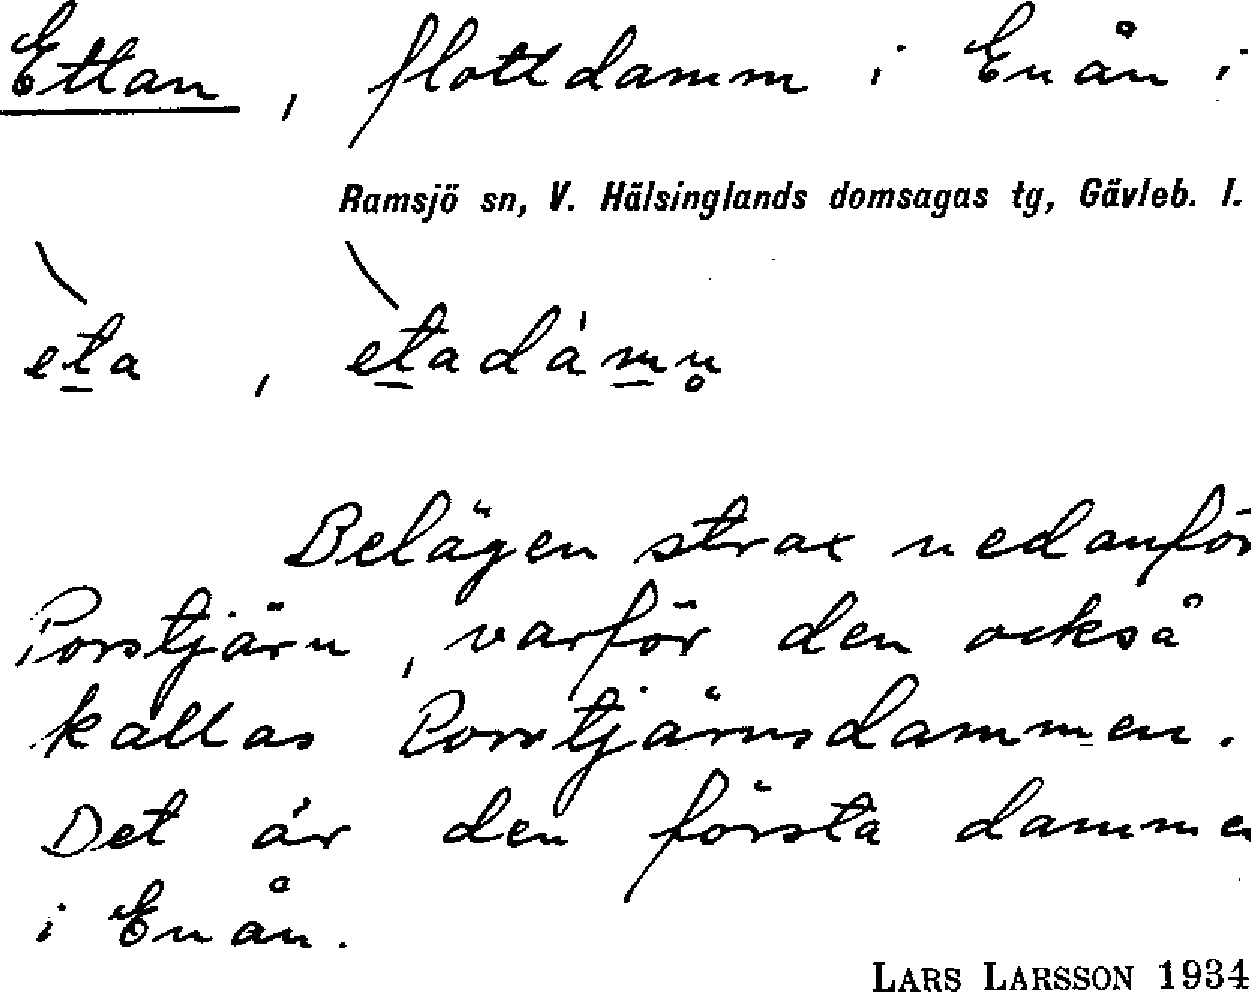 Ettan, flottdamm i Enån i
Ramsjö sn, V. Hälsinglands domsagas tg, Gävleb. l.
èta, ètadámn̥
Belägen strax nedanför
Porstjärn, varför den också
kallas Porstjärnsdammen.
Det är den första damme
i Enån.
LARS LARSSON 1934